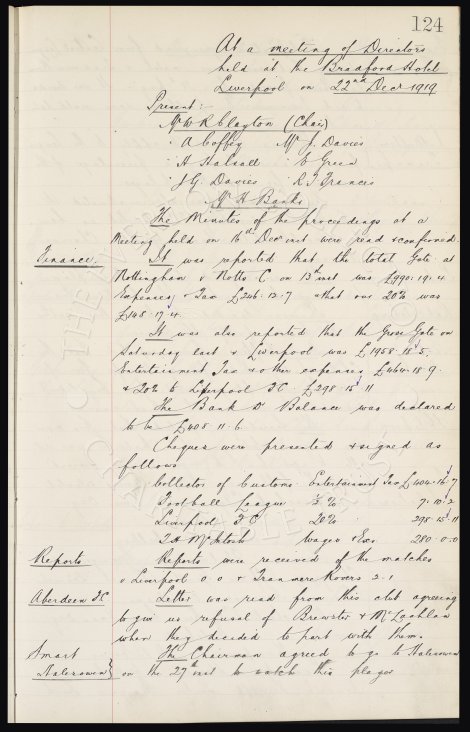 124
At a meeting of Directors
held at the Bradford Hotel
Liverpool on 22nd Decr 1919
Present:-
Mr W R Clayton (Chair)
" A Coffey Mr J. Davies
" H Halsall " C Green
" J G. Davies " R T Frances
Mr H Banks
The Minutes of the proceedings at a
Meeting held on 16th Decr inst were read & confirmed.
Finance. It was reported that the total Gate at
Nottingham v Notts C on 13th inst was £990.19.4
Expenses & Tax £246.12.7 & that our 20% was
£148.17.4.
It was also reported that the Gross Gate on
Saturday last v Liverpool was £1958.15.5.
Entertainment Tax & other expenses £464.18.9.
& 20% to Liverpool F.C. £298.15.11
The Bank Dr Balance was declared
to be £408.11.6.
Cheques were presented & signed as
follows
Collector of Customs Entertainment Tax £404.16.7
Football League ½% 7.10.2
Liverpool F C 20% 298.15.11
T H McIntosh Wages & Exs 280.0.0
Reports Reports were received of the matches
v Liverpool 0.0 & Tranmere Rovers 2.1
Aberdeen F.C Letter was read from this club agreeing
to give us refusal of Brewster & McLachlan
when they decided to part with them.
Smart The Chairman agreed to go to Halesowen
Halesowen } on the 27th inst to watch this player